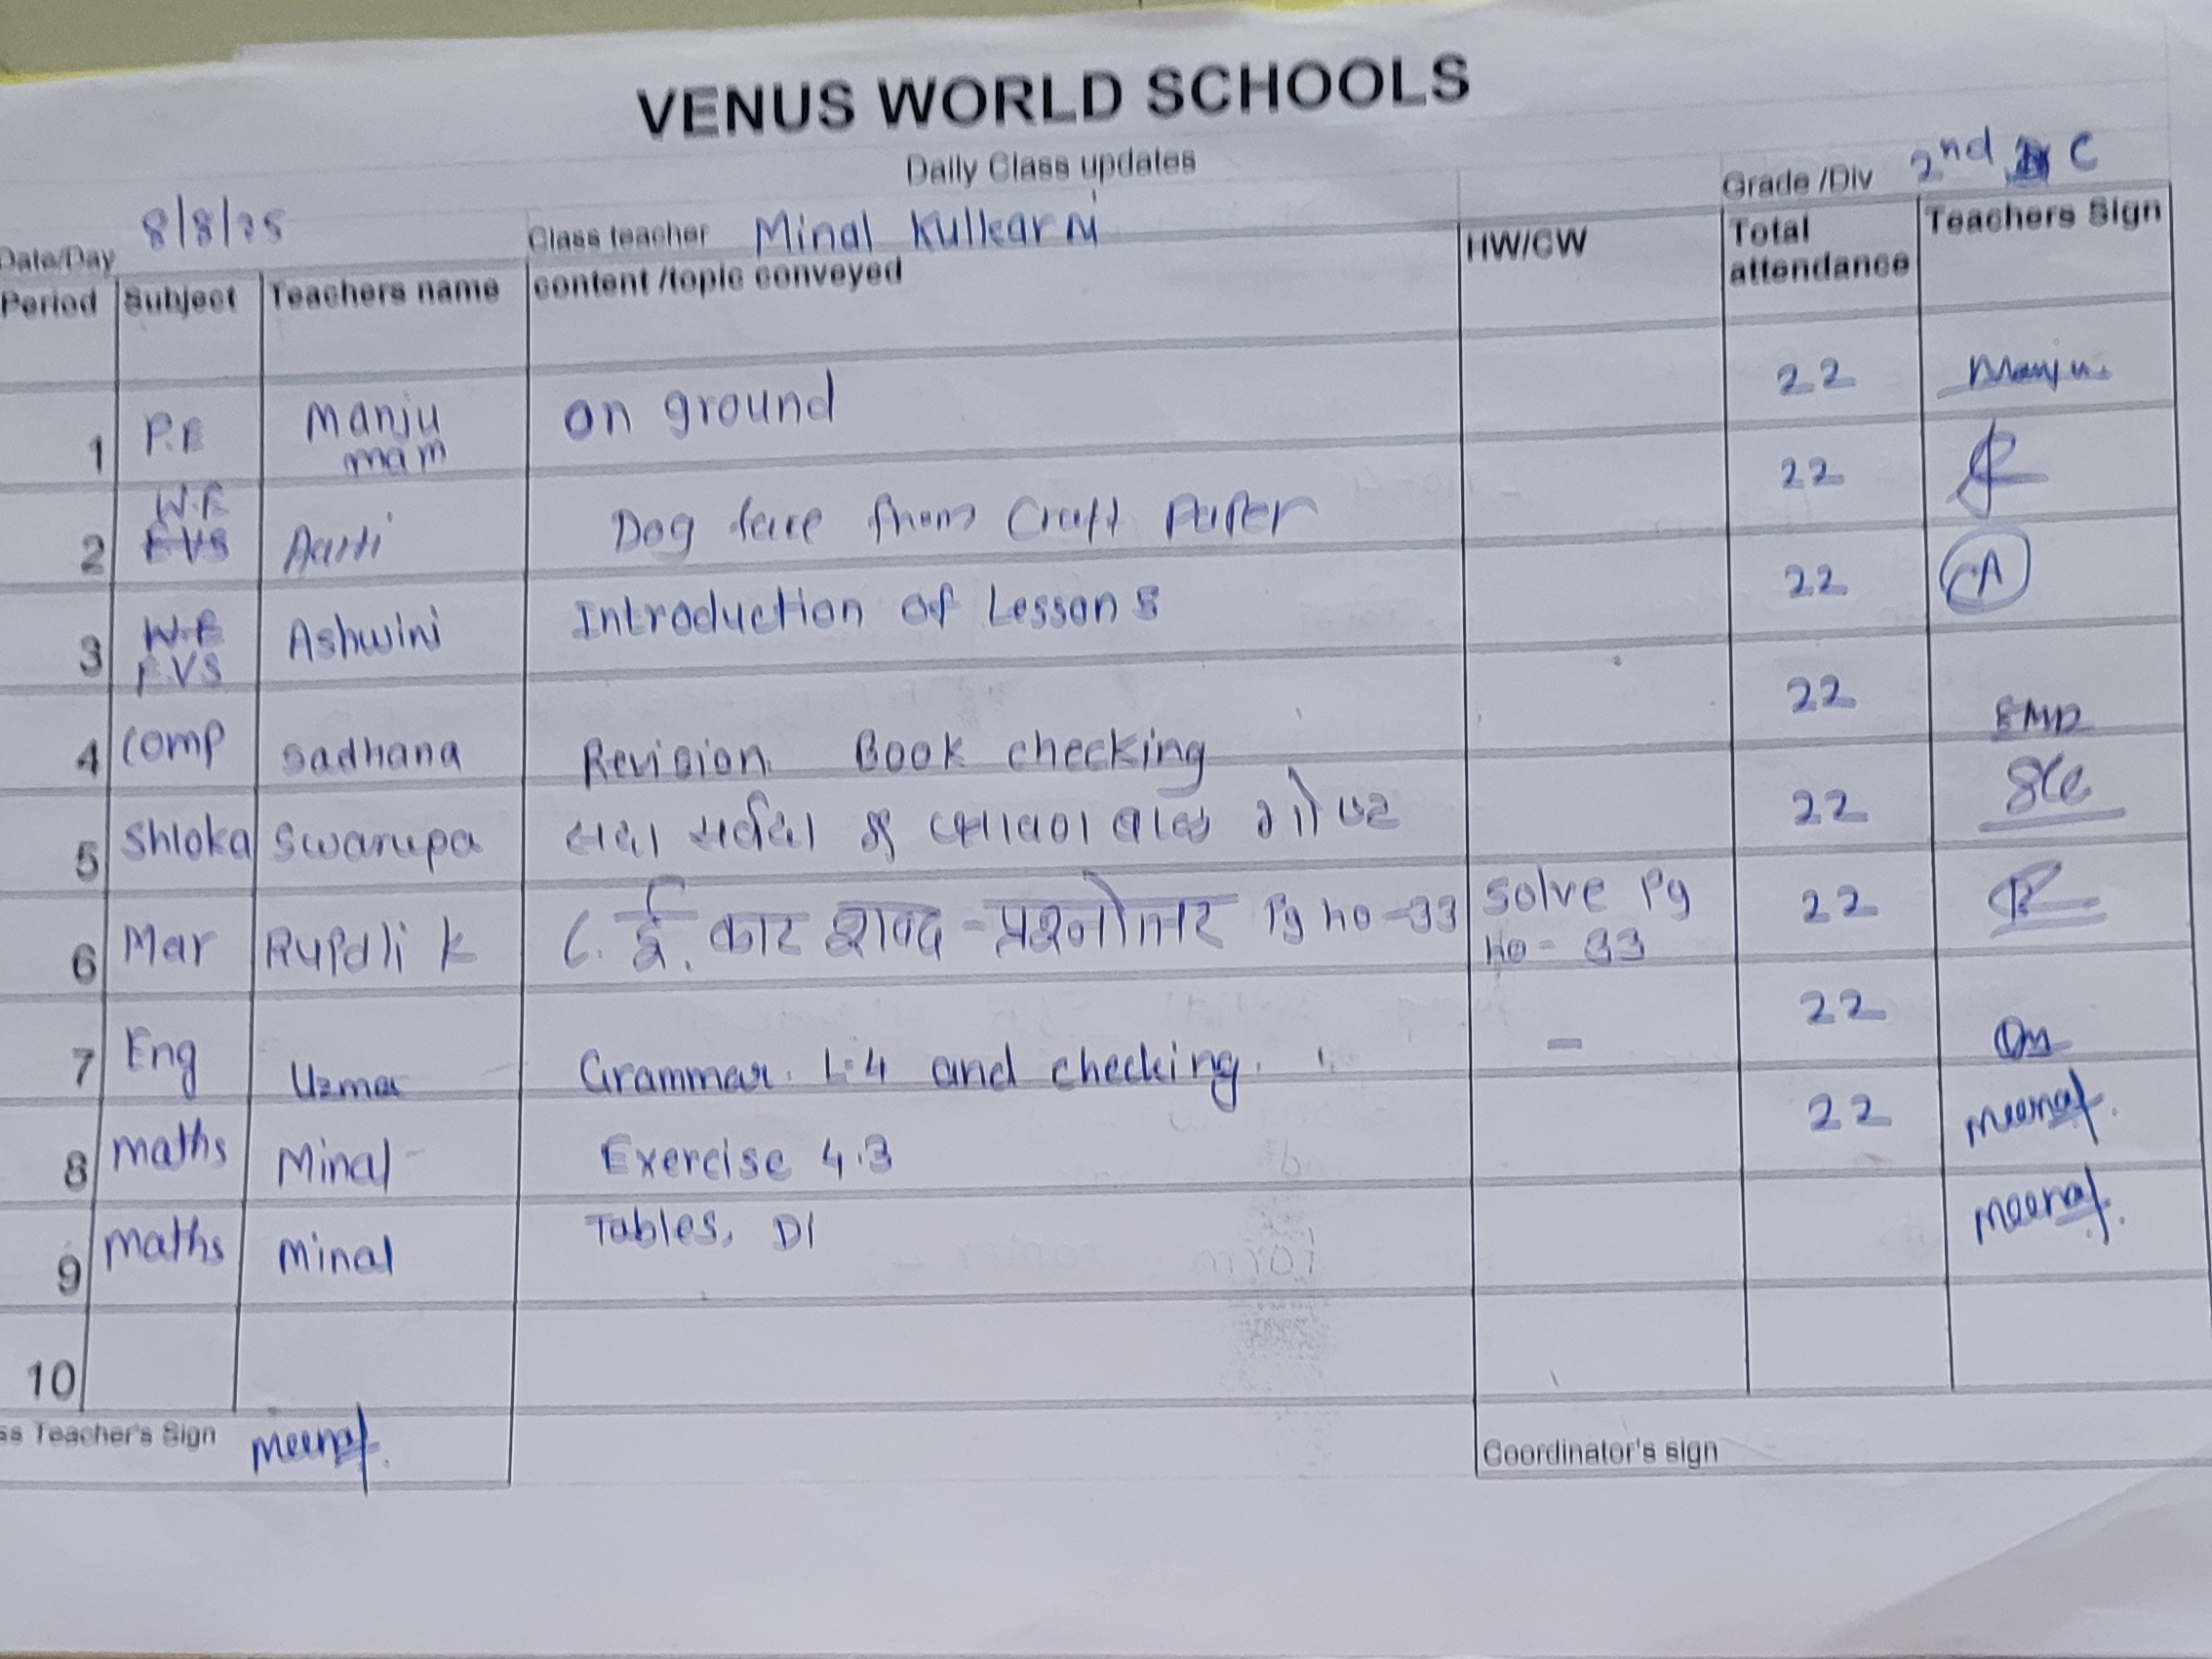 VENUS WORLD SCHOOLS
Daily Class updates
Date/Day 8/8/25 Class teacher Minal Kulkarni Grade /Div 2nd C
Period Subject Teachers name content /topic conveyed HW/CW Total attendance Teachers Sign
1 P.E Manju mam on ground 22 Manju
2 W.E EVS Aarti Dog face from Craft Paper 22
3 W.E EVS Ashwini Introduction of Lesson 8 22 A
4 Comp Sadhana Revision. Book checking 22
5 Shloka Swarupa 22
6 Mar Rupali K ८. ई. कार शब्द - प्रश्नोत्तर Pg no-33 Solve Pg no- 33 22
7 Eng Uzma Grammar. L.4 and checking. - 22
8 maths Minal Exercise 4.3 22
9 maths Minal Tables, D1
10
ss Teacher's Sign
Coordinator's sign